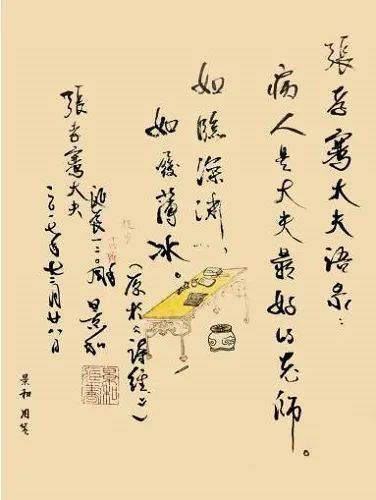 張孝騫大夫語录：
病人是大夫最好的老師。
如臨深渊，
如履薄冰。
（原於《詩經》）
張孝騫大夫
誕辰一二〇周年 景和
二〇一七年十二月廿八日
景和用笺